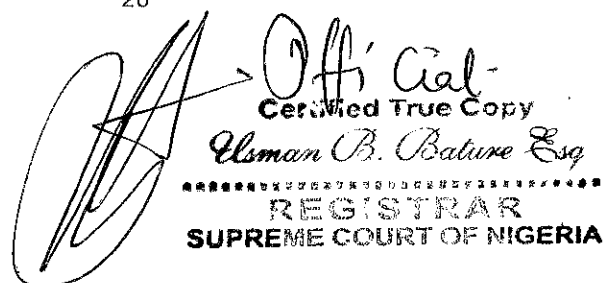 20
Official-
Certified True Copy
Usman B. Bature Esq
REGISTRAR
SUPREME COURT OF NIGERIA